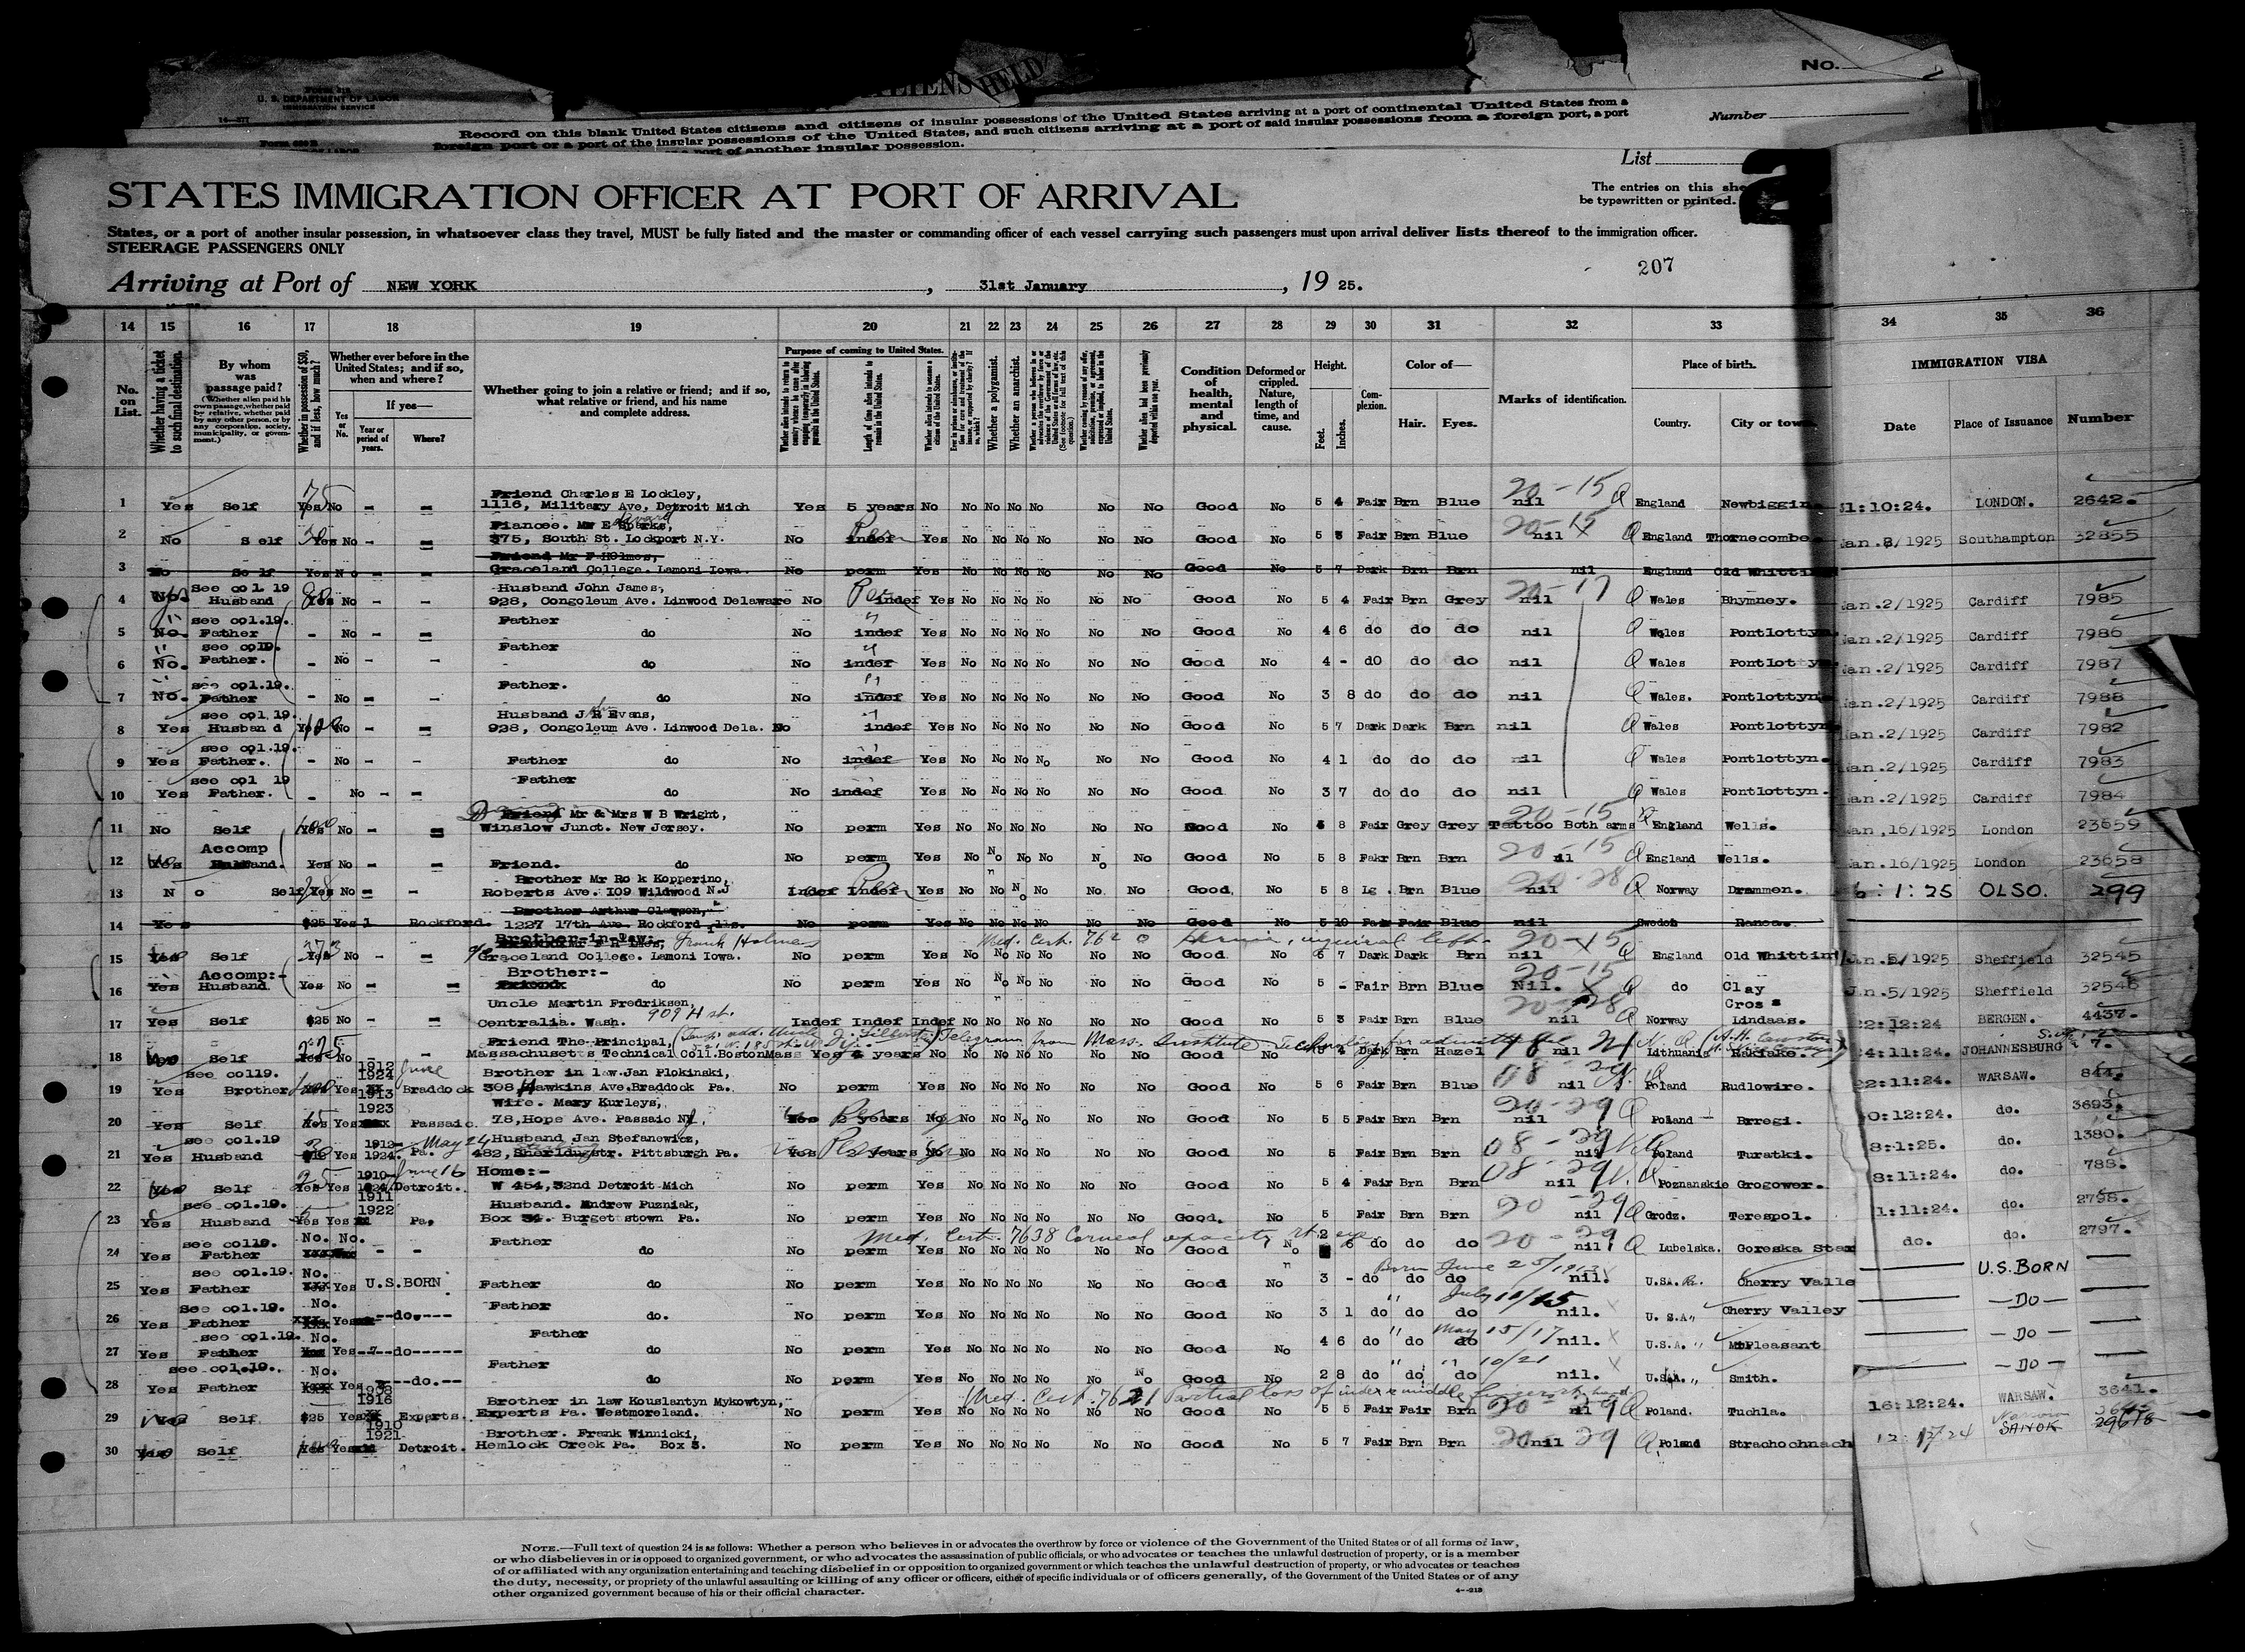 No.
FORM 218
U. S. DEPARTMENT OF LABOR
IMMIGRATION SERVICE
ALIENS HELD
Record on this blank United States citizens and citizens of insular possessions of the United States arriving at a port of continental United States from a
foreign port or a port of the insular possessions of the United States, and such citizens arriving at a port of said insular possessions from a foreign port, a port
or a port of another insular possession.
Number
List
STATES IMMIGRATION OFFICER AT PORT OF ARRIVAL
The entries on this she
be typewritten or printed.
States, or a port of another insular possession, in whatsoever class they travel, MUST be fully listed and the master or commanding officer of each vessel carrying such passengers must upon arrival deliver lists thereof to the immigration officer.
STEERAGE PASSENGERS ONLY
207
Arriving at Port of NEW YORK, 31st January, 19 25.
14 15 16 17 18 19 20 21 22 23 24 25 26 27 28 29 30 31 32 33 34 35 36
No. on List.
Whether having a ticket to such final destination.
By whom was passage paid?
(Whether alien paid his own passage, whether paid by relative, whether paid by any other person, or by any corporation, society, municipality, or government.)
Whether in possession of $50, and if less, how much?
Whether ever before in the United States; and if so, when and where?
Yes or No.
If yes—
Year or period of years.
Where?
Whether going to join a relative or friend; and if so, what relative or friend, and his name and complete address.
Purpose of coming to United States.
Length of time alien intends to remain in the United States.
Whether alien intends to become a citizen of the United States.
Whether a polygamist.
Whether an anarchist.
Condition of health, mental and physical.
Deformed or crippled. Nature, length of time, and cause.
Height.
Feet. Inches.
Complexion.
Color of—
Hair. Eyes.
Marks of identification.
Place of birth.
Country. City or town
IMMIGRATION VISA
Date Place of Issuance Number
Friend Charles E Lockley,
1 Yes Self 75 Yes No - - 1116, Military Ave, Detroit Mich Yes 5 years No No No No No No No Good No 5 4 Fair Brn Blue nil 20-15 England Newbiggin 31:10:24. LONDON. 2642.
Fiancee. Mr E Sparks,
2 No Self Yes No - - 375, South St. Lockport N.Y. No indef Yes No No No No No No Good No 5 3 Fair Brn Blue nil 20-15 England Thornecombe Jan.8/1925 Southampton 32855
Friend Mr F Holmes,
3 No Self Yes No - - Graceland College. Lamoni Iowa. No perm Yes No No No No No No Good No 5 7 Dark Brn Brn nil England Old Whittin
See col. 19 Husband John James,
4 Husband Yes No - - 928, Congoleum Ave. Linwood Delaware No indef Yes No No No No No No Good No 5 4 Fair Brn Grey nil 20-17 Wales Rhymney. Jan.2/1925 Cardiff 7985
see col.19. Father
5 No. Father - No - - do No indef Yes No No No No No No Good No 4 6 do do do nil Wales Pontlottyn Jan.2/1925 Cardiff 7986
see col9. Father
6 No. Father. - No - - do No indef Yes No No No No No No Good No 4 - do do do nil Wales Pontlottyn Jan.2/1925 Cardiff 7987
see col.19. Father.
7 No. Father - No - - do No indef Yes No No No No No No Good No 3 8 do do do nil Wales. Pontlottyn Jan.2/1925 Cardiff 7988
see col.19. Husband J R Evans,
8 Yes Husband Yes No - - 928, Congoleum Ave. Linwood Dela. No indef Yes No No No No No No Good No 5 7 Dark Dark Brn nil Wales Pontlottyn Jan.2/1925 Cardiff 7982
see col.19.
9 Yes Father. - No - - Father do No indef Yes No No No No No No Good No 4 1 do do do nil Wales Pontlottyn. Jan.2/1925 Cardiff 7983
see col 19 Father
10 Yes Father. - No - - do No indef Yes No No No No No No Good No 3 7 do do do nil Wales Pontlottyn. Jan.2/1925 Cardiff 7984
Friend Mr & Mrs W B Wright,
11 No Self Yes No - - Winslow Junct. New Jersey. No perm Yes No No No No No No Good No 5 8 Fair Grey Grey Tattoo Both arms 20-15 England Wells. Jan.16/1925 London 23659
Accomp
12 Yes Husband. Yes No - - Friend. do No perm Yes No No No No No No Good No 5 8 Fair Brn Brn nil 20-15 England Wells. Jan.16/1925 London 23658
Brother Mr Ro k Kopperino,
13 No Self Yes No - - Roberts Ave. 109 Wildwood N.J Indef Indef Yes No No No No No No Good No 5 8 Lg. Brn Blue nil 20-28 Norway Drammen. 6:1:25 OLSO. 299
Brother Arthur Clawson,
14 Yes $25 Yes 1 Rockford. 1227 17th Ave. Rockford Ills. No perm Yes No No No No No No Good No 5 10 Fair Fair Blue nil Sweden Ranea.
Brother-in-law:, Frank Holmes Med. Cert. 762 Hernia, inguinal left.
15 Yes Self 373 Yes No - - Graceland College. Lamoni Iowa. No perm Yes No No No No No No Good No 5 7 Dark Dark Brn nil 20-15 England Old Whittin Jan.5/1925 Sheffield 32545
Accomp:- Brother:-
16 Yes Husband Yes No - - do No perm Yes No No No No No No Good No 5 - Fair Brn Blue Nil. 20-15 do Clay Cross Jan.5/1925 Sheffield 32546
Uncle Martin Fredriksen, 909 H st.
17 Yes Self $25 No - Centralia. Wash. Indef Indef Indef No No No No No No Good No 5 3 Fair Brn Blue nil 20-28 Norway Lindaas. 22:12:24 BERGEN. 4437.
Friend The Principal, Telegram from Mass. Institute Technology for admittance
18 Self 225 Yes No - - Massachusetts Technical Coll.Boston Mass Yes 4 years No No No No No No No Good No 5 4 Dark Brn Hazel nil Lithuania 24:11:24. JOHANNESBURG 7.
see col19. 1912 1924 June Brother in law.Jan Plokinski,
19 Yes Brother Yes 1913 Braddock 308 Hawkins Ave.Braddock Pa. No perm Yes No No No No No No Good No 5 6 Fair Brn Blue nil Poland Rudlowire. 22:11:24. WARSAW. 844.
1923 Wife. Mary Kurleys,
20 Yes Self 65 Yes Passaic. 78,Hope Ave. Passaic NJ, 2 years No No No No No No Good No 5 5 Fair Brn Brn nil 20-29 Poland Brregi. 10:12:24. do. 3693.
see col.19 1912- May 24 Husband Jan Stefanowicz,
21 Yes Husband Yes 1924. Pa. 482, str. Pittsburgh Pa. Yes 2 years No No No No No No Good No 5 Fair Brn Brn nil 08-29 Poland Turatki. 8:1:25. do. 1380.
1910- June 16 Home:-
22 Self 25 Yes Yes 1924 Detroit. W 454,32nd Detroit Mich No perm Yes No No No No No No Good No 5 4 Fair Brn Brn nil 08-29 Poznanskie Grogower. 8:11:24. do. 788.
see col.19. 1911 1922 Husband. Andrew Puzniak,
23 Yes Husband Yes Yes Pa, Box 34. Burgettstown Pa. No perm Yes No No No No No No Good. No 5 Fair Brn Brn nil 20-29 Grodz. Terespol. 1:11:24. do. 2798.
see col19. No. No. Father Med. Cert. 7638 Corneal opacity rt. eye
24 Yes Father - - do No perm Yes No No No No No No Good No 2 6 do do do nil 20-29 Lubelska. Goreska Star do. do. 2797.
see col.19. No. Born June 25/1913
25 Yes Father Yes U.S.BORN Father do No perm Yes No No No No No No Good No 3 - do do do nil. U.SA. Cherry Valle U.S. BORN
See col.19. No. Father July 10/15
26 Yes Father Yes --do.---- do. No perm Yes No No No No No No Good No 3 1 do do do nil. U. S.A" Cherry Valley —DO—
see col.19. No. Father May 15/17
27 Yes Father Yes --do----- do No perm Yes No No No No No No Good No 4 6 do do do nil. U.S.A. " MtPleasant —DO—
see col.19. No. Father 10/21
28 Yes Father Yes ---do.-- do No perm Yes No No No No No No Good No 2 8 do do do nil. U.S.A. " Smith. —DO—
1908 1916 Brother in law Kouslantyn Mykowtyn, Med. Cert. 7621 Partial loss of index & middle fingers rt. hand.
29 Yes Self $25 Yes Experts. Experts Pa. Westmoreland. No perm Yes No No No No No No Good No 5 5 Fair Fair Brn nil 20-29 Poland. Tuchla. 16:12:24. WARSAW. 3641.
1910 1921- Brother. Frank Winnicki,
30 Self Yes Detroit. Hemlock Creek Pa. Box 3. No perm Yes No No No No No No Good No 5 7 Fair Brn Brn nil 20-29 Poland Strachochnach 12 12/24 SANOK 29618
NOTE.—Full text of question 24 is as follows: Whether a person who believes in or advocates the overthrow by force or violence of the Government of the United States or of all forms of law,
or who disbelieves in or is opposed to organized government, or who advocates the assassination of public officials, or who advocates or teaches the unlawful destruction of property, or is a member
of or affiliated with any organization entertaining and teaching disbelief in or opposition to organized government or which teaches the unlawful destruction of property, or who advocates or teaches
the duty, necessity, or propriety of the unlawful assaulting or killing of any officer or officers, either of specific individuals or of officers generally, of the Government of the United States or of any
other organized government because of his or their official character.